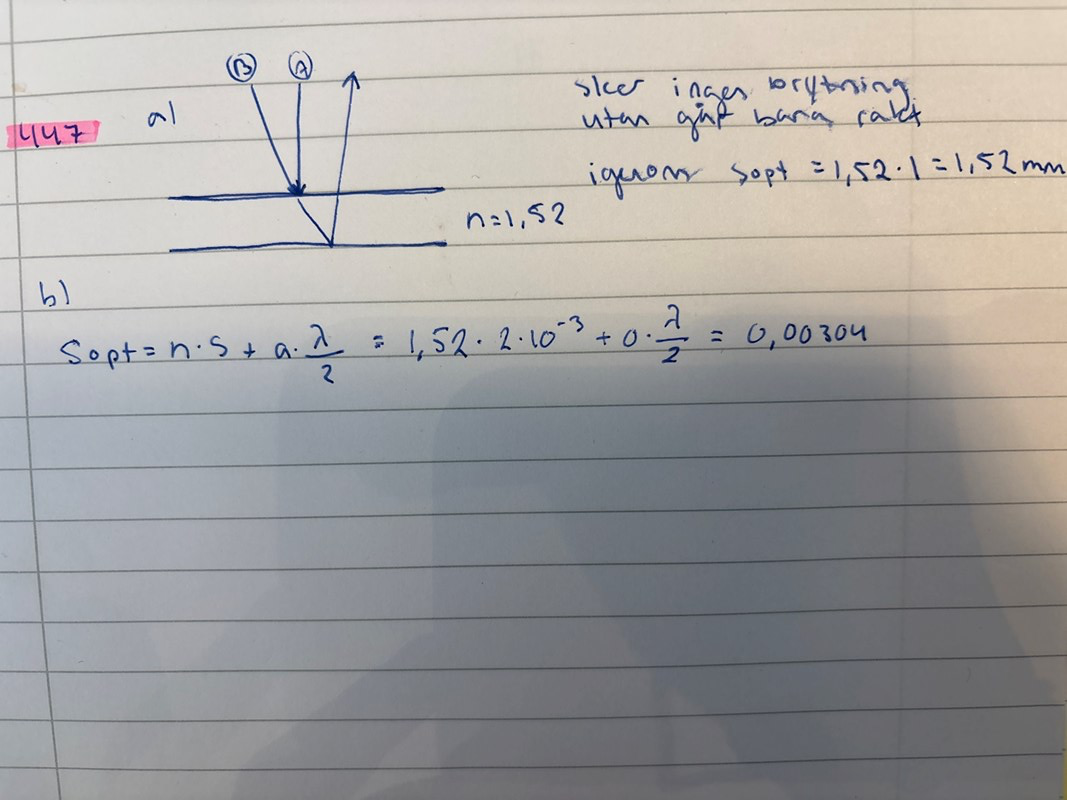 447
a) B A
sker ingen brytning
utan går bara rakt
igenom Sopt = 1,52 · 1 = 1,52 mm
n=1,52
b)
Sopt = n · s + a · λ/2 = 1,52 · 2 · 10⁻³ + 0 · λ/2 = 0,00304